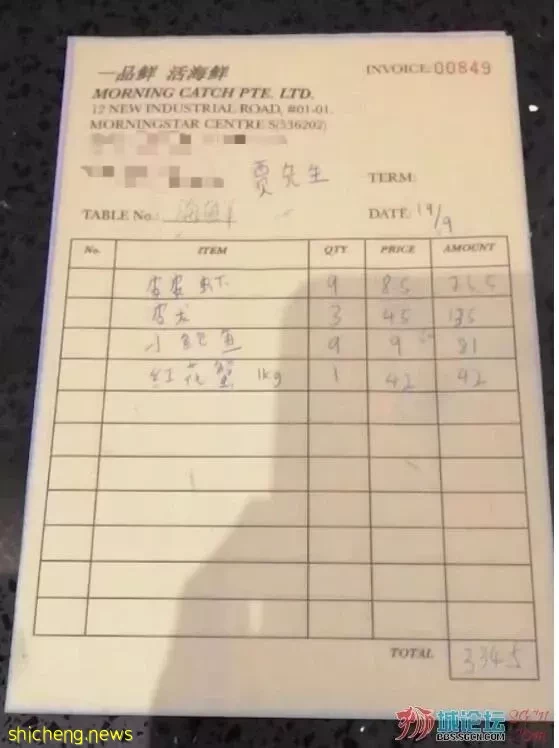 一品鲜 活海鲜
INVOICE: 00849
MORNING CATCH PTE. LTD.
12 NEW INDUSTRIAL ROAD, #01-01.
MORNINGSTAR CENTRE S(536202)
贾先生
TERM:
TABLE No.:
DATE: 19/9
No. ITEM QTY PRICE AMOUNT
皮皮虾 9 8.5 76.5
3 45 135
小鲍鱼 9 9 81
红花蟹 1kg 1 42 42
TOTAL 334.5
shicheng.news
狮城论坛
BBS.SGCN.COM